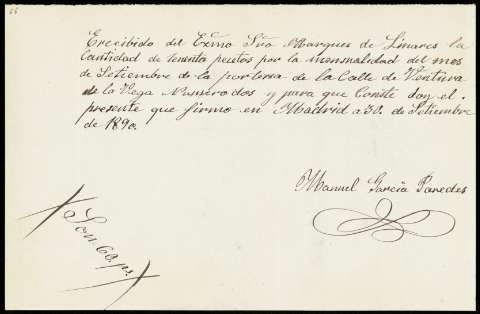 Erecibido del Exmo Sro Marques de Linares la
Cantidad de sesenta pesetas por la mensualidad del mes
de Setiembre de la porteria de la Calle de Ventura
de la Vega Numero dos y para que Conste doy el
presente que firmo en Madrid a 30. de Setiembre
de 1890.
Manuel Garcia Paredes
Son 60. ps.